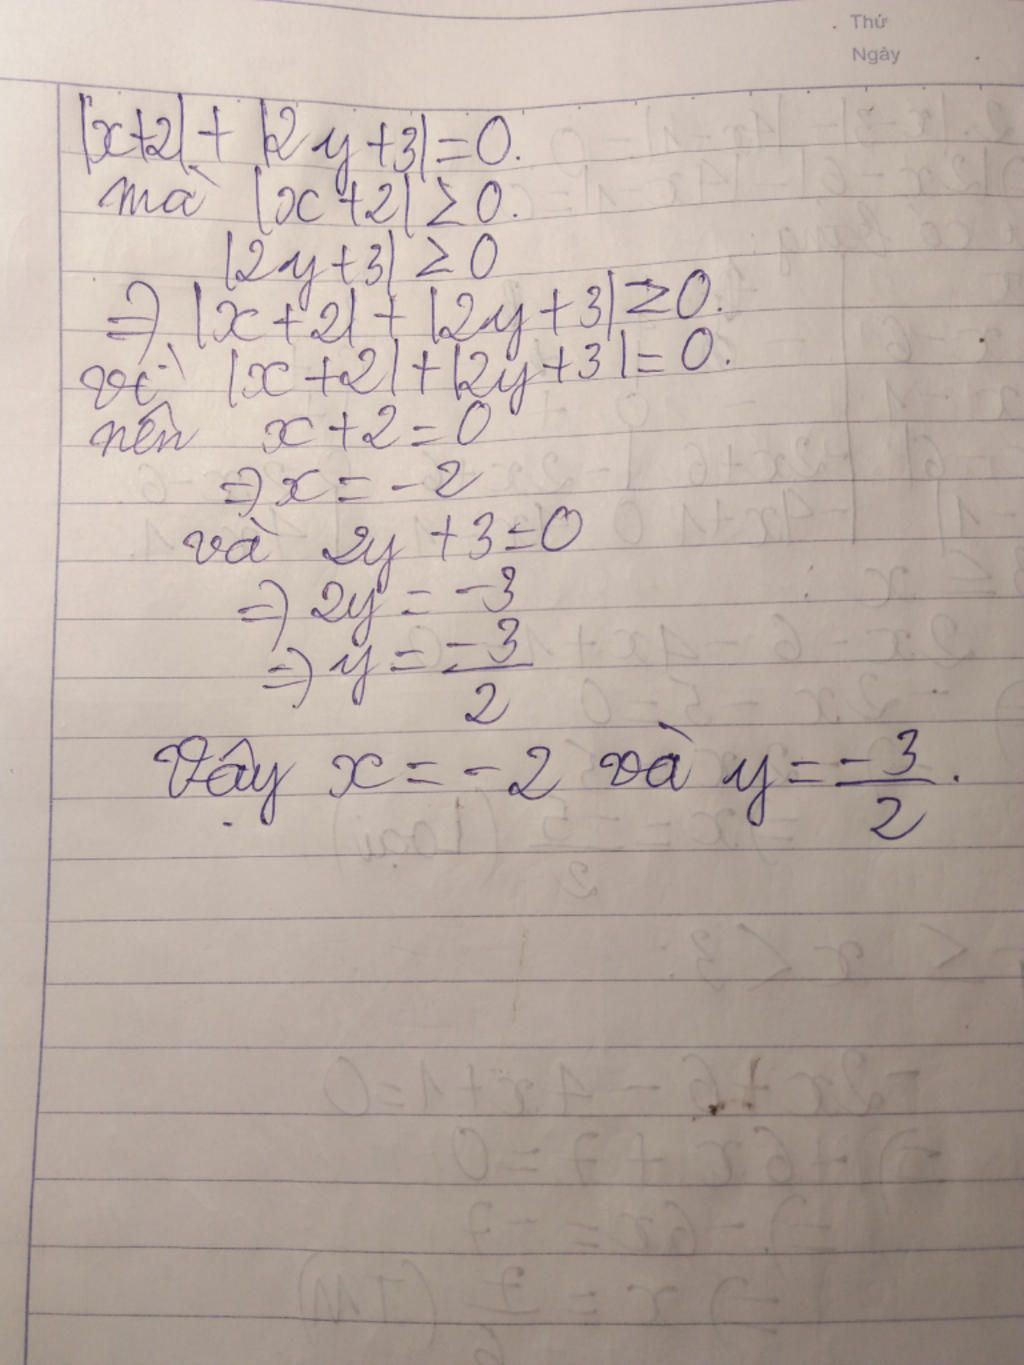 Thứ
Ngày
|x+2| + |2y+3| = 0.
mà |x+2| ≥ 0.
|2y+3| ≥ 0
=> |x+2| + |2y+3| ≥ 0.
vì |x+2| + |2y+3| = 0.
nên x+2 = 0
=> x = -2
và 2y +3 = 0
=> 2y = -3
=> y = -3/2
Vậy x = -2 và y = -3/2.